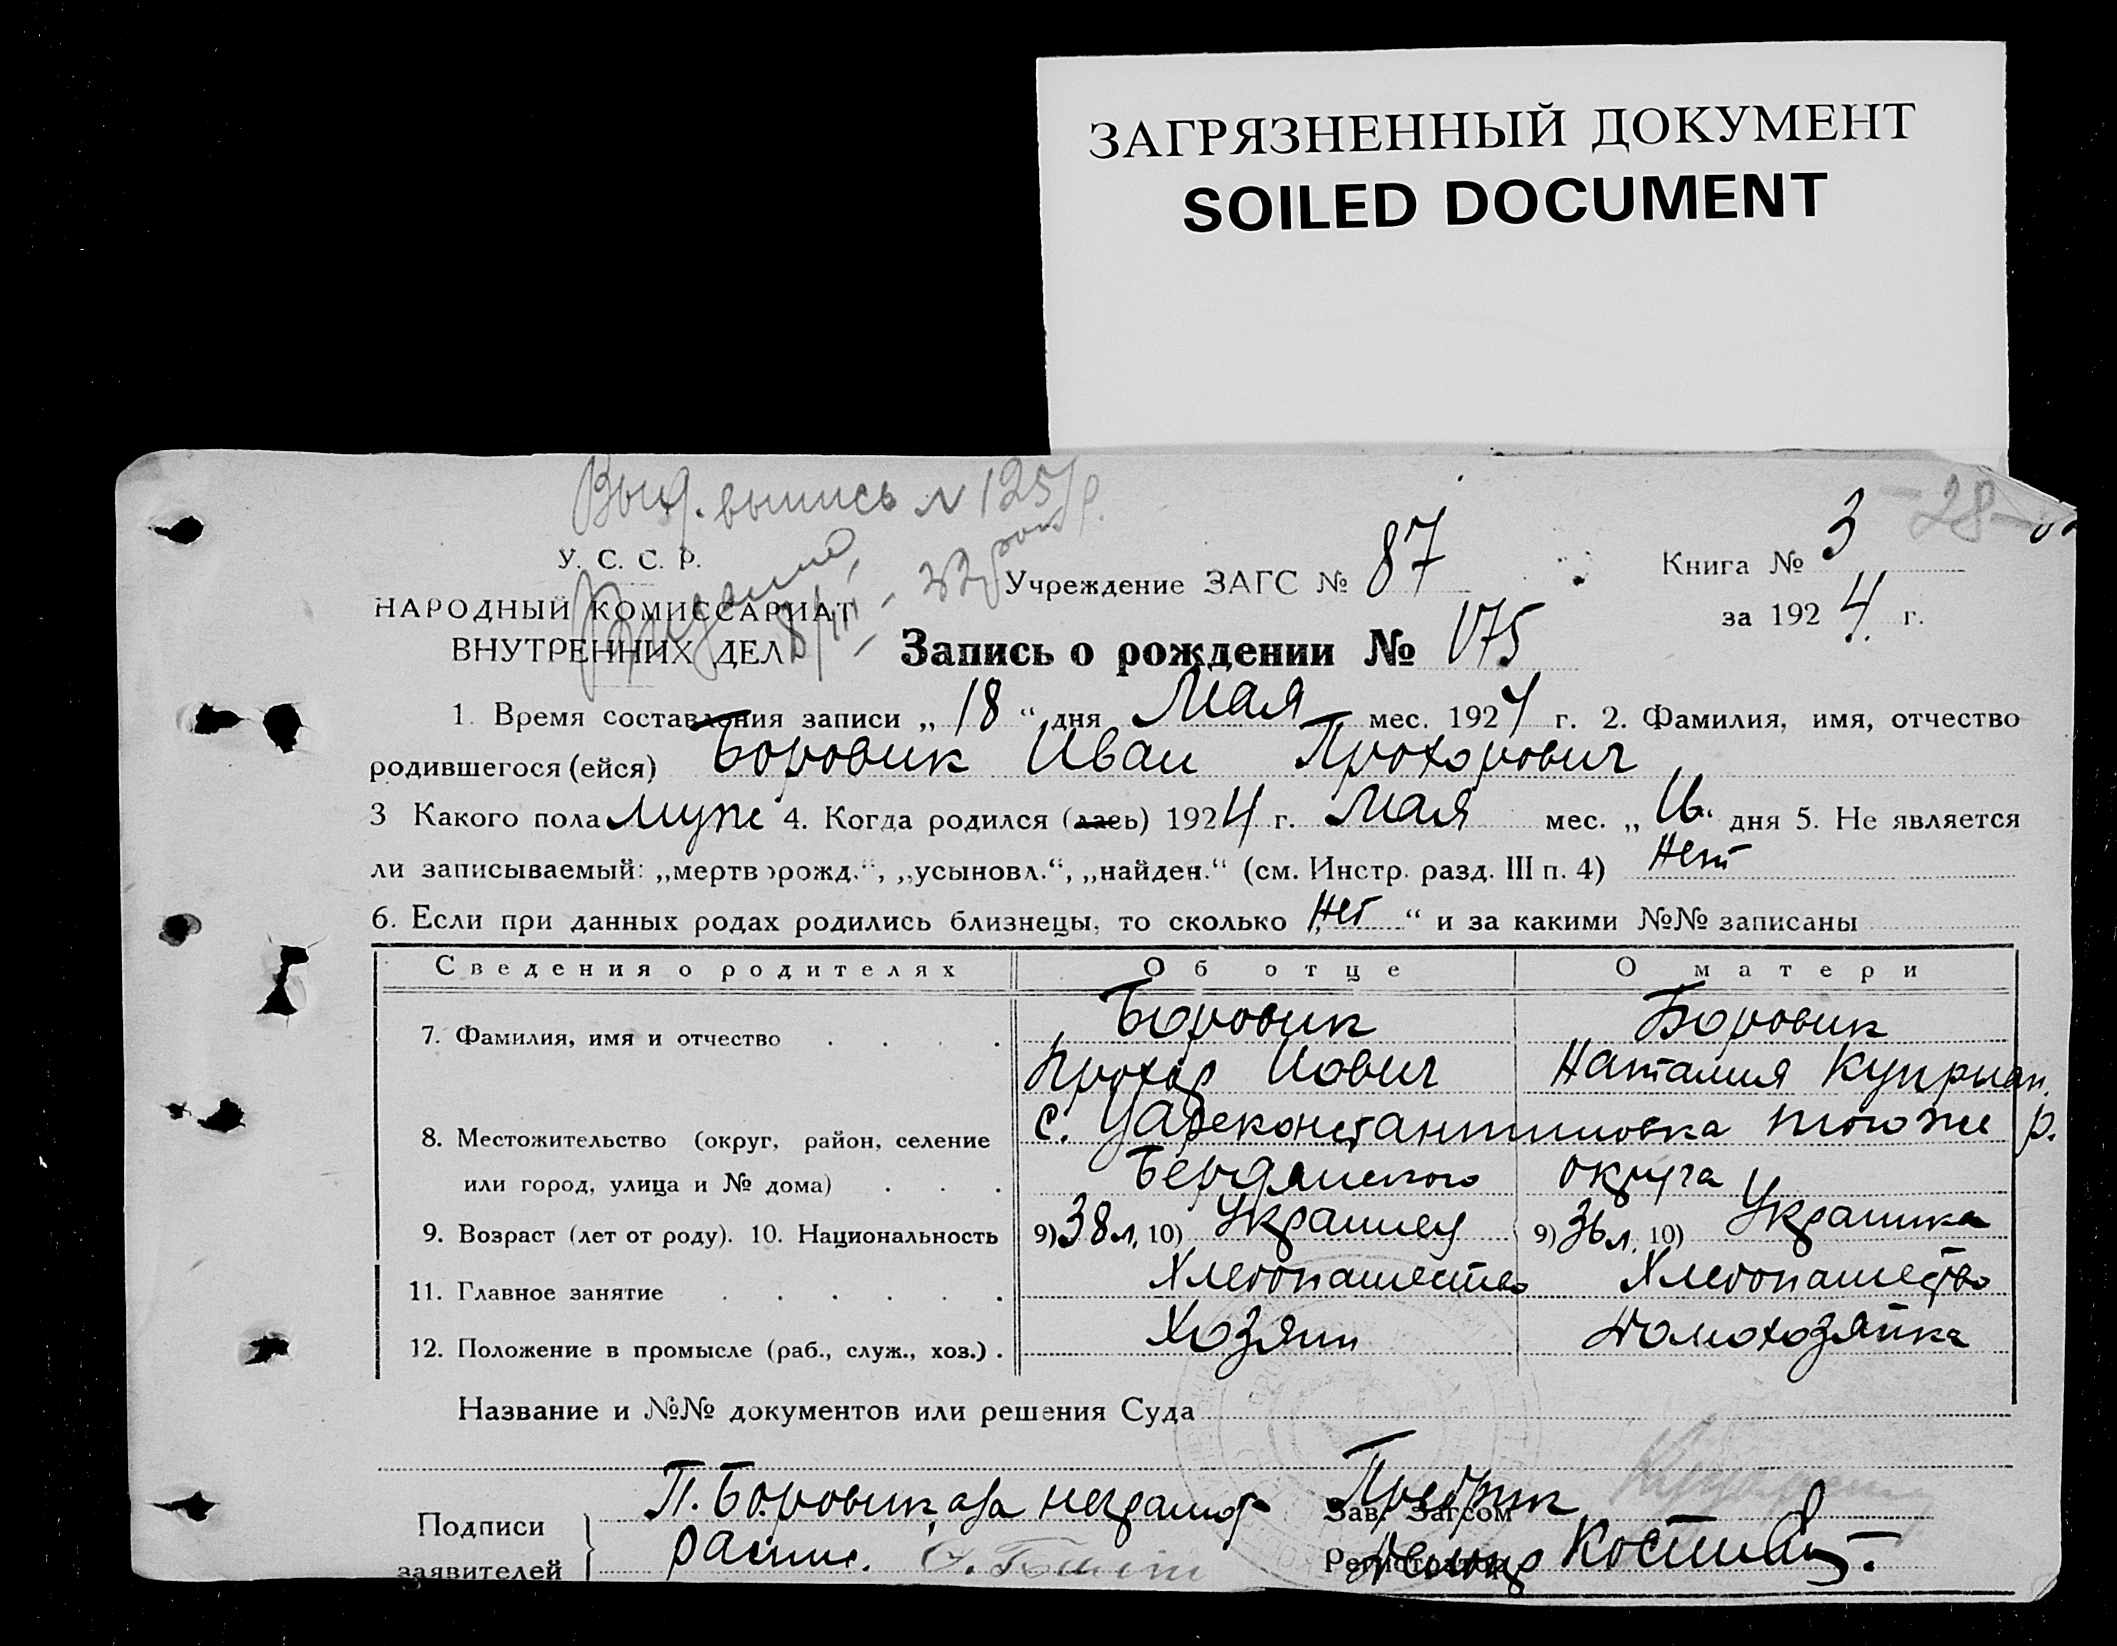 ЗАГРЯЗНЕННЫЙ ДОКУМЕНТ
SOILED DOCUMENT
Выд. выпись N 125/р.
28
У. С. С. Р.
Учреждение ЗАГС № 87
Книга № 3
НАРОДНЫЙ КОМИССАРИАТ
за 1924 г.
ВНУТРЕННИХ ДЕЛ
Запись о рождении № 175
1. Время составления записи „ 18 “ дня Мая мес. 1924 г. 2. Фамилия, имя, отчество
родившегося (ейся) Боровик Иван Прохорович
3 Какого пола муж 4. Когда родился (лась) 1924 г. Мая мес. „ 16 “ дня 5. Не является
ли записываемый: „мертворожд.“, „усыновл.“, „найден.“ (см. Инстр. разд. III п. 4) Нет
6. Если при данных родах родились близнецы, то сколько „ Нет “ и за какими №№ записаны
Сведения о родителях Об отце О матери
7. Фамилия, имя и отчество Боровик Боровик
Прохор Иович Наталия Куприан.
8. Местожительство (округ, район, селение с. Цареконстантиновка тогоже р.
или город, улица и № дома) Бердянского округа
9. Возраст (лет от роду). 10. Национальность 9) 38 л. 10) Украинец 9) 36 л. 10) Украинка
11. Главное занятие Хлебопашество Хлебопашество
12. Положение в промысле (раб., служ., хоз.) Хозяин Домохозяйка
Название и №№ документов или решения Суда
П. Боровик, а за неграмот
Зав. Загсом
Подписи
заявителей
распис.
Регистратор Костив